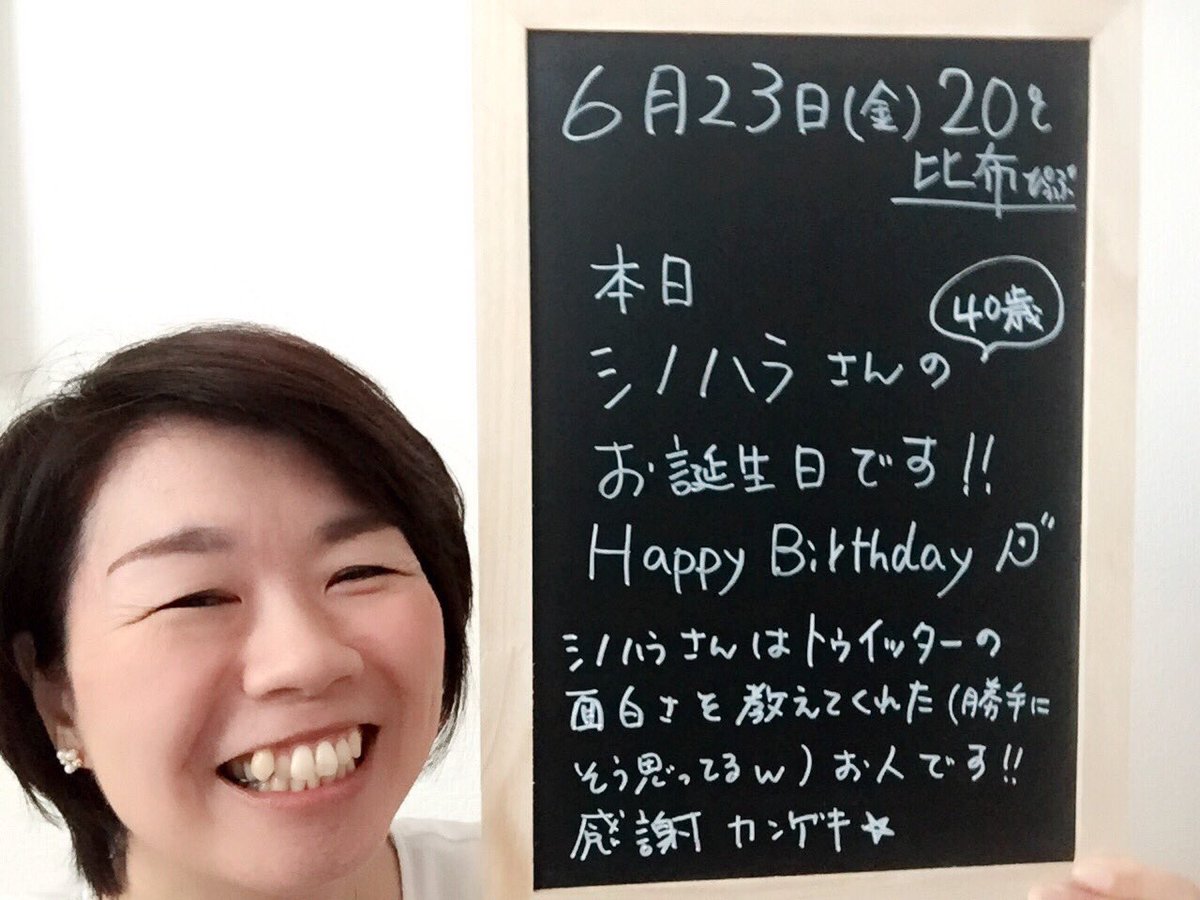 6月23日(金)20℃
比布ぴぷ
本日
40歳
シノハラさんの
お誕生日です!!
Happy Birthday
シノハラさんはトゥイッターの
面白さを教えてくれた(勝手に
そう思ってるw)お人です!!
感謝カンゲキ☆